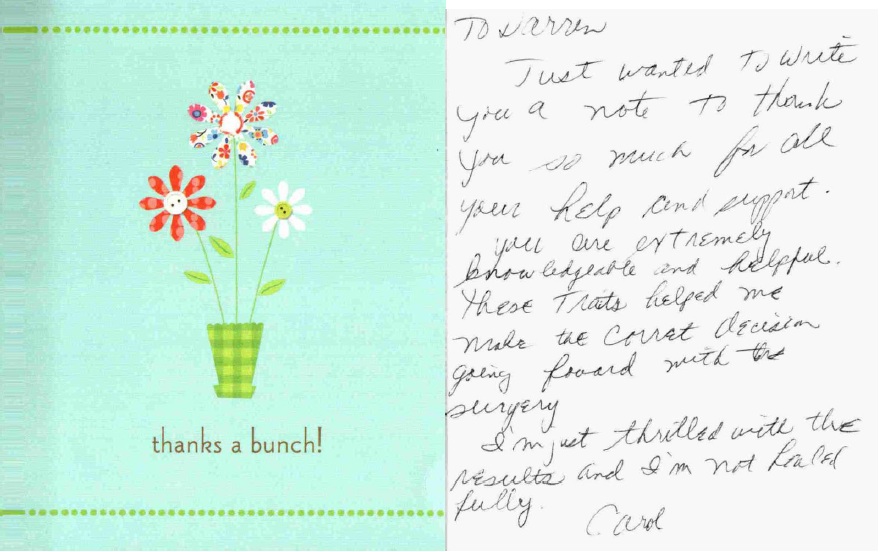 thanks a bunch!
To Darren
Just wanted to write
you a note to thank
you so much for all
your help and support.
you are extremely
knowledgeable and helpful.
these traits helped me
make the corret decision
going foward with the
surgery
I'm just thrilled with the
results and I'm not healed
fully.
Carol